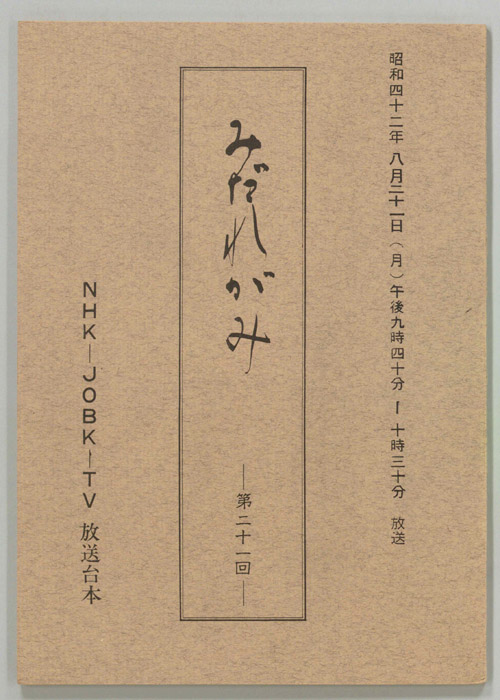 昭和四十二年 八月二十一日（月）午後九時四十分ー十時三十分 放送
みだれがみ
―第二十一回―
NHK―JOBK―TV 放送台本